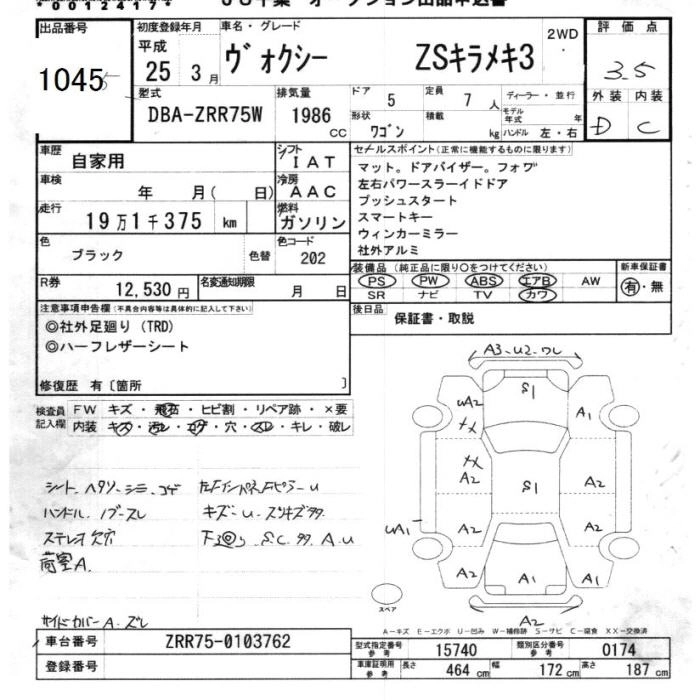 出品番号
1045
初度登録年月
平成
25 3月
車名・グレード
ヴォクシー ZSキラメキ3
2WD
評価点
3.5
外装 内装
D C
型式
DBA-ZRR75W
排気量
1986
CC
ドア
5
定員
7人
形状
ワゴン
積載
kg
ディーラー・並行
モデル年式 年
ハンドル 左・右
車歴
自家用
シフト
IAT
車検
年 月( 日)
冷房
AAC
走行
19万1千375 km
燃料
ガソリン
色
ブラック
色替
色コード
202
R券
12,530円
名変通知期限
月 日
セールスポイント(正常に機能するものに限ります)
マット。ドアバイザー。フォワ
左右パワースラーイドドア
プッシュスタート
スマートキー
ウィンカーミラー
社外アルミ
装備品(純正品に限り○をつけてください)
PS PW ABS エアB AW
SR ナビ TV カワ
新車保証書
有・無
後日品
保証書・取説
注意事項申告欄(不具合内容等は具体的に記入して下さい)
◎社外足廻り(TRD)
◎ハーフレザーシート
修復歴 有〔箇所 〕
検査員記入欄
FW キズ・飛石・ヒビ割・リペア跡・×要
内装 キズ・汚レ・コゲ・穴・スレ・キレ・破レ
シート ヘタリ シミ コゲ
ハンドル
ステレオ欠穴
荷室A.
サイドカバーA. ズレ
A3. U2. ワレ
S1
UA2
A1
A2
S1
A2
UA1
A2
A2
A2
A1
A2
A2
スペア
A-キズ E-エクボ U-凹み W-補修跡 S-サビ C-腐食 XX-交換済
車台番号
ZRR75-0103762
登録番号
型式指定番号 参考
15740
類別区分番号 参考
0174
車庫証明用 参考
長さ 464cm
幅 172cm
高さ 187cm